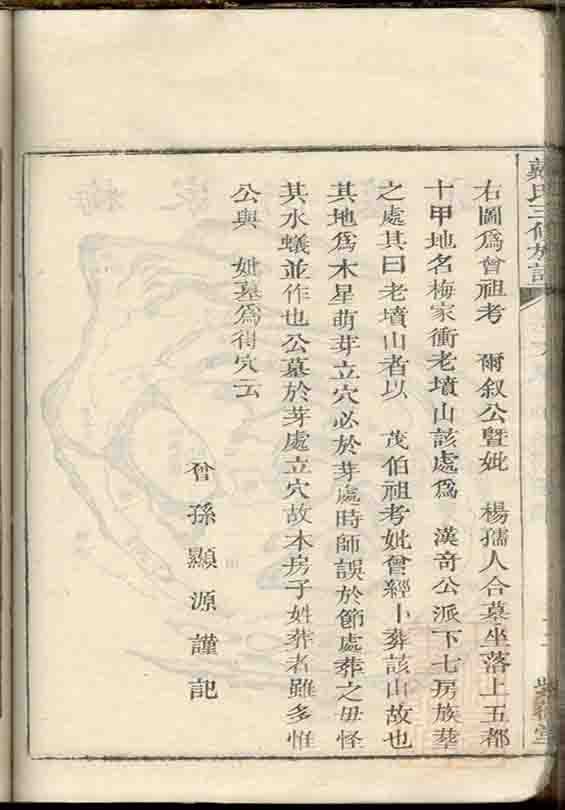 氏三修族譜
右圖爲曾祖考 爾叙公曁妣 楊孺人合墓坐落上五都
十甲地名梅家衝老墳山該處爲 漢奇公派下七房族塋
之處其曰老墳山者以 茂伯祖考妣曾經卜葬該山故也
其地爲木星萌芽立穴必於芽處時師誤於節處葬之毋怪
其水蟻並作也公墓於芽處立穴故本房子姓葬者雖多惟
公與 妣墓爲得穴云
曾孫顯源謹記